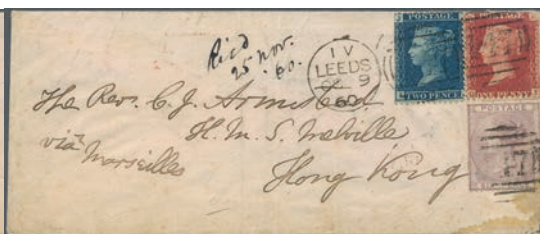 Rec'd
25 Nov.
60.
1 V
LEEDS
OC 9
60
POSTAGE
TWO PENCE
POSTAGE
ONE PENNY
POSTAGE
The Rev. C. J. Armstead
H. M. S. Melville
via Marseilles
Hong Kong